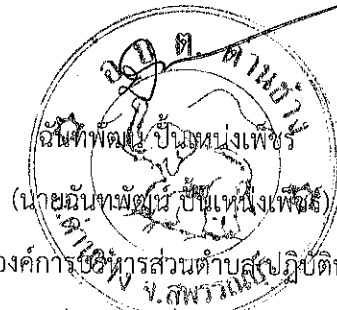 อบต. ด่านช้าง
ฉันทพัฒน์ ปั้นเหน่งเพ็ชร์
(นายฉันทพัฒน์ ปั้นเหน่งเพ็ชร์)
องค์การบริหารส่วนตำบล ปฏิบัติ
จ.สุพรรณบุรี